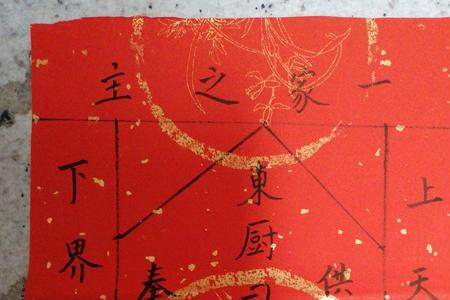 一家之主
上天
東厨司
供奉
下界